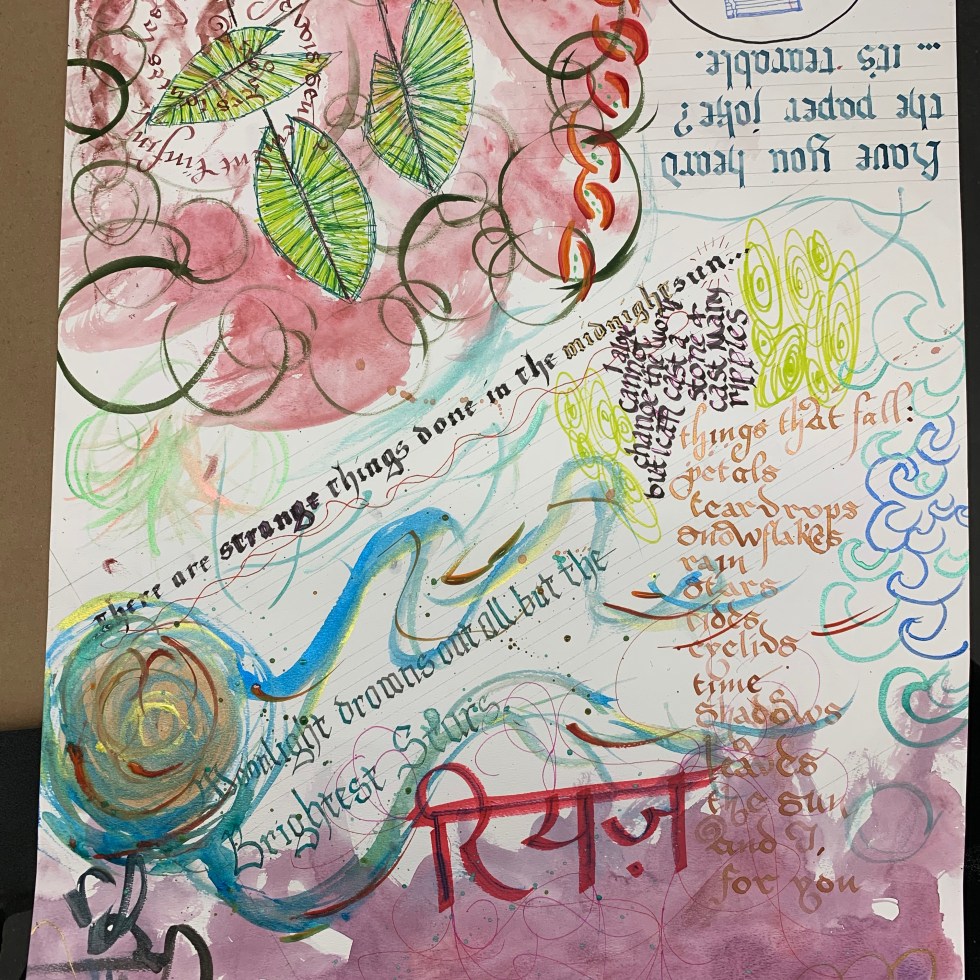 Have you heard
the paper joke?
... it's tearable.
There are strange things done in the midnight sun...
I alone
cannot
change the world
but I can cast a
stone &
cast many
ripples
things that fall:
petals
teardrops
snowflakes
rain
stars
tides
eyelids
time
shadows
leaves
the sun
And I,
for you
Moonlight drowns out all but the
Brightest Stars.
रियाज़